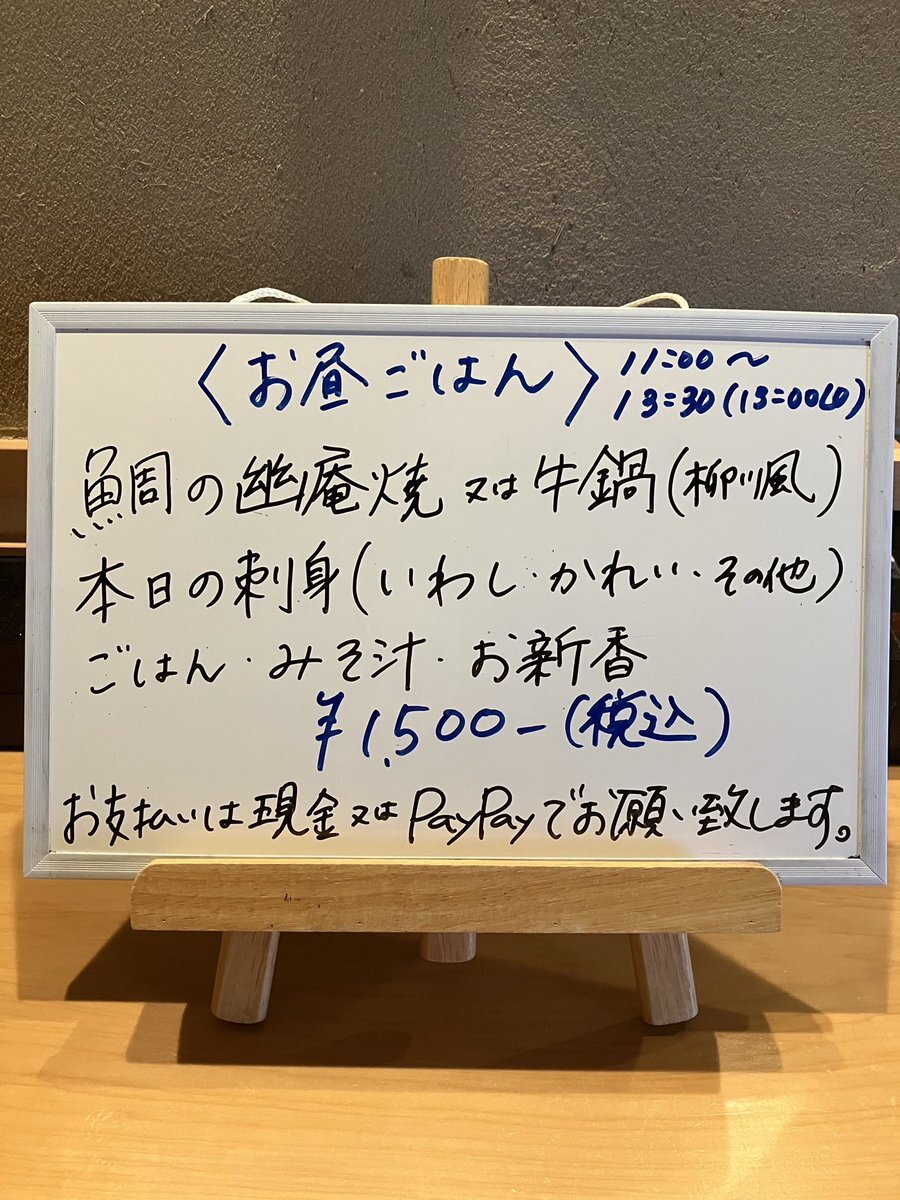 〈お昼ごはん〉 11:00～
13:30(13:00LO)
鯛の幽庵焼 又は 牛鍋(柳川風)
本日の刺身(いわし・かれい・その他)
ごはん・みそ汁・お新香
¥1,500-(税込)
お支払いは現金又はPayPayでお願い致します。